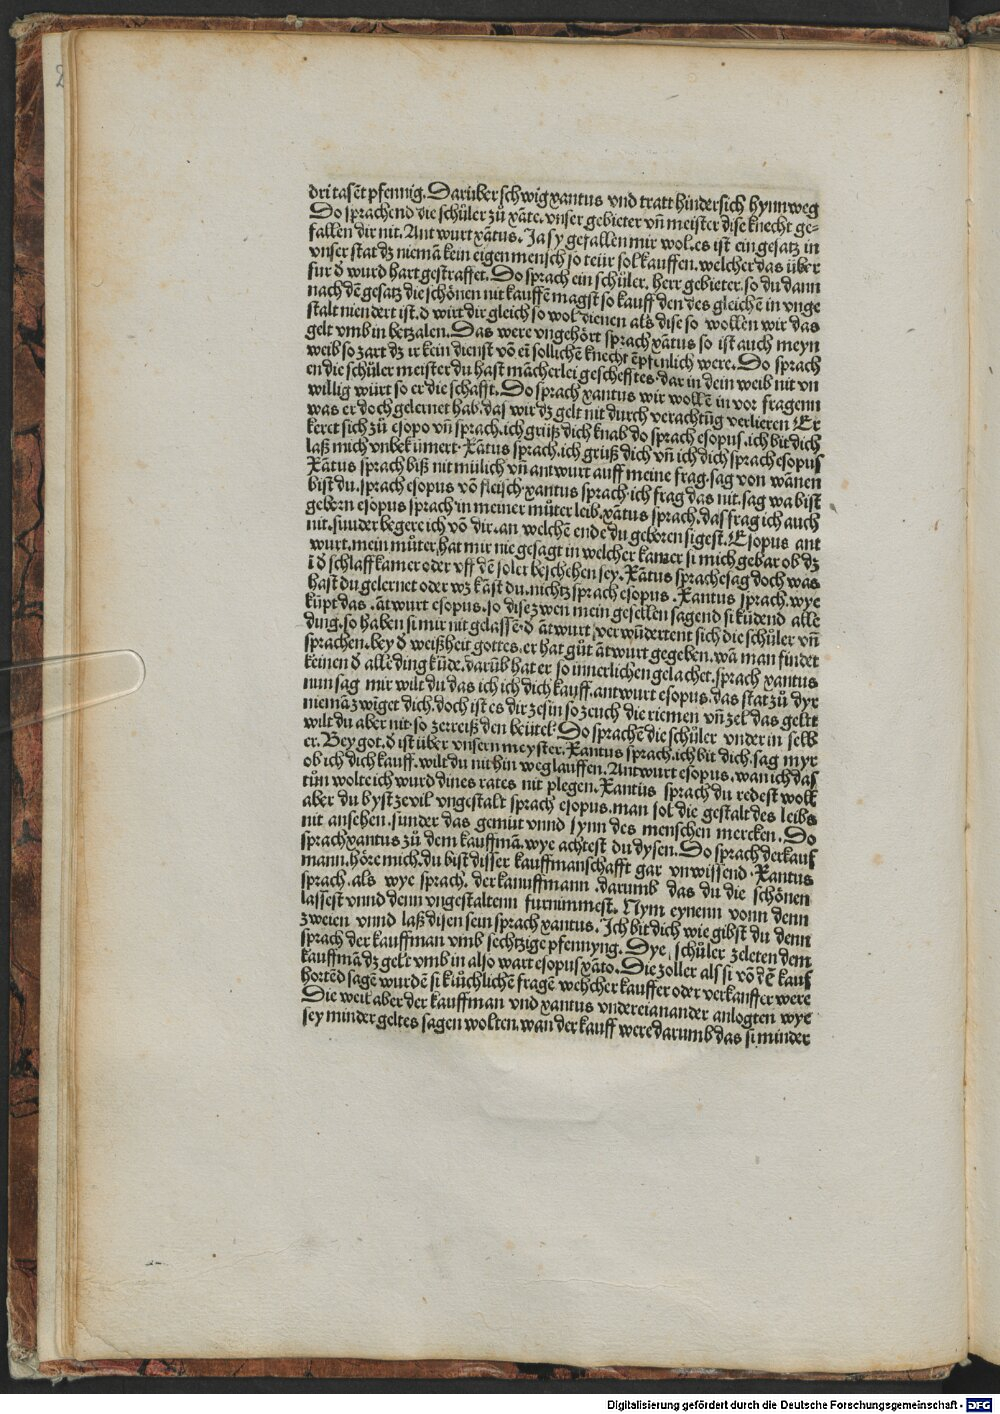 dri tasēt pfennig. Darüber schwig xantus vnd tratt hindersich hynnweg
Do sprachend die schůler zů xāte. vnser gebieter vn̄ meister dise knecht ge-
fallen dir nit. Antwurt xātus. Ja sy gefallen mir wol. es ist ein gesatz in
vnser stat dz niemā kein eigen mensch so teür sol kauffen. welcher das über
fur d̄ wurd hart gestraffet. Do sprach ein schůler. herr gebieter. so du dann
nach dē gesatz die schönen nit kauffē magst so kauff den des gleichē in vnge
stalt niendert ist. d̄ wirt dir gleich so wol dienen als dise so wöllen wir das
gelt vmb in betzalen. Das were vngehört sprach xātus so ist auch meyn
weib so zart dz ir kein dienst vō eī sollichē knecht ēpfenlich were. Do sprach
en die schůler meister du hast mācherlei gescheff tes. dar in dein weib nit vn
willig würt so er die schafft. Do sprach xantus wir wollē in vor fragenn
was er doch gelernet hab. das wir dz gelt nit durch verachtūg verlieren Er
keret sich zů esopo vn̄ sprach. ich grüß dich knab do sprach esopus. ich bit dich
laß mich vnbekümert. Xātus sprach. ich grüß dich vn̄ ich dich sprach esopus
Xātus sprach biß nit mülich vn̄ antwurt auff meine frag. sag von wānen
bist du. sprach esopus vō fleisch. xantus sprach. ich frag das nit. sag wa bist
geborn esopus sprach in meiner můter leib. xātus sprach. das frag ich auch
nit. sunder begere ich vō dir. an welchē ende du geboren sigest. Esopus ant
wurt. mein můter hat mir nie gesagt in welcher kamer si mich gebar ob dz
ī d̄ schlaff kamer oder vff dē soler beschehen sey. Xātus sprach esag doch was
hast du gelernet oder wz kāst du. nichtz sprach esopus. Xantus sprach. wye
küpt das. ātwurt esopus. so dise zwen mein gesellen sagend si kūdend alle
ding. so haben si mir nit gelassē. d̄ ātwurt verwūdertent sich die schůler vn̄
sprachen. bey d̄ weißheit gottes. er hat gůt ātwurt gegeben. wā man findet
keinen d̄ alle ding kūde. darūb hat er so innerlichen gelachet. sprach xantus
nun sag mir wilt du das ich ich dich kauff. antwurt esopus. das stat zů dyr
niemā zwiget dich. doch ist es dir ze sin so zeuch die riemen vn̄ zel das gelt
wilt du aber nit. so zerreiß den beütel. Do sprachē die schůler vnder in selb
er. Bey got. d̄ ist über vnsern meyster. Xantus sprach. ich bit dich. sag myr
ob ich dich kauff. wilt du nit hin weg lauffen. Antwurt esopus. wan ich das
tůn wolte ich wurd dines rates nit plegen. Xantus sprach du redest woll
aber du byst zevil vngestalt sprach esopus. man sol die gestalt des leibs
nit ansehen. sunder das gemüt vnnd synn des menschen mercken. Do
sprach xantus zů dem kauffmā. wye achtest du dysen. Do sprach der kauf
mann. höre mich. du bist disser kauffmanschafft gar vnwissend. Xantus
sprach. als wye sprach. der kanuffmann. darumb das du die schönen
lassest vnnd denn vngestaltenn furnimmest. Nym eynenn vonn denn
zweien vnnd laß disen sein sprach xantus. Ich bit dich wie gibst du denn
sprach der kauffman vmb sechtzige pfennyng. Dye schůler zeleten dem
kauffmā dz gelt vmb in also wart esopus xāto. Die zoller als si vō dē kauf
hortēd sagē wurdē si kiüchlichē fragē welcher kauffer oder verkanffer were
Die weil aber der kauffman vnd xantus vndereianander anlogten wye
sey minder geltes sagen wolten. wan der kauff were darumb das si minder
Digitalisierung gefördert durch die Deutsche Forschungsgemeinschaft - DFG